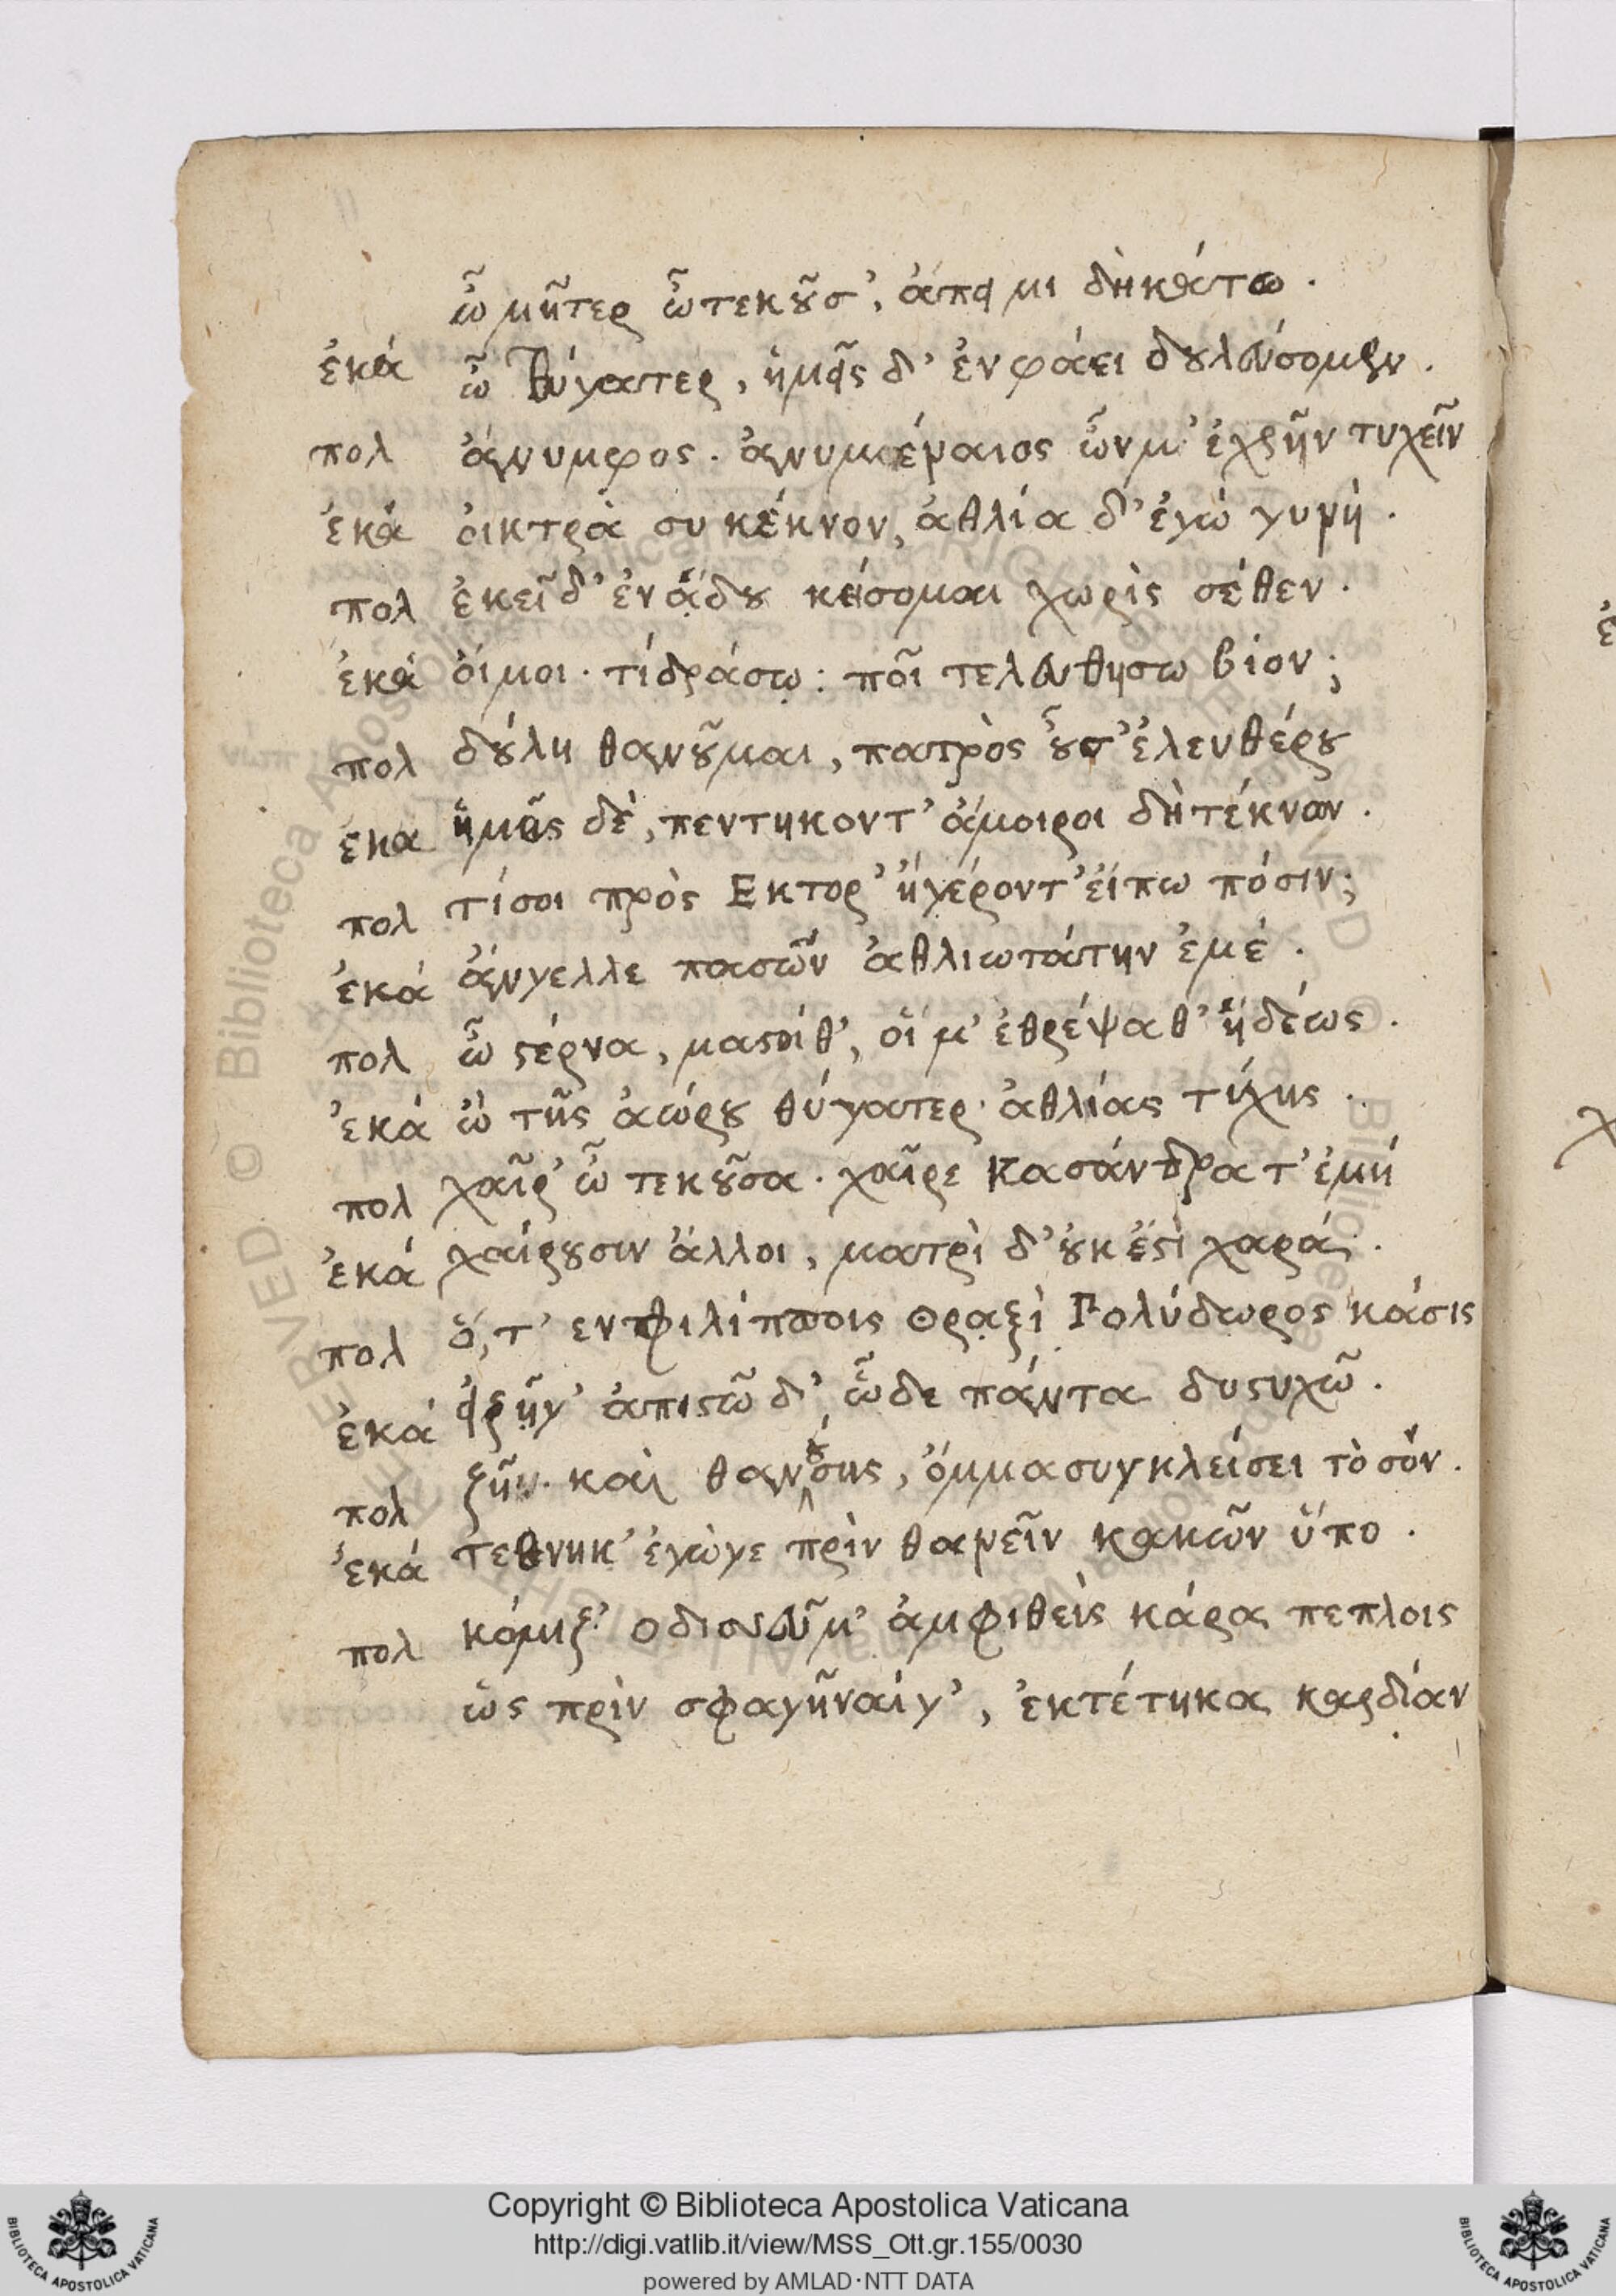 ὦ μῆτερ ὦ τεκοῦσ', ἄπειμι δὴ κάτω.
ἑκά ὦ θύγατερ, ἡμεῖς δ' ἐν φάει δουλεύσομεν.
πολ ἄνυμφος. ἀνυμέναιος ὧν μ' ἐχρῆν τυχεῖν
ἑκά οἰκτρὰ συ κέκνον, ἀθλία δ' ἐγὼ γυνή.
πολ ἐκεῖ δ' ἐν ἅδου κείσομαι χωρὶς σέθεν.
ἑκά οἴμοι. τί δράσω: ποῖ τελευθησω βίον;
πολ δούλη θανοῦμαι, πατρὸς οὖσ' ἐλευθέρου
ἑκα ἡμεῖς δὲ, πεντηκοντ' ἄμοιροι δὴ τέκνων.
πολ τί σοι πρὸς Εκτορ' ἢ γέροντ' εἴπω πόσιν;
ἑκά ἄνγελλε πασῶν ἀθλιωτάτην ἐμέ.
πολ ὦ ϛέρνα, μαϛοί θ', οἵ μ' ἐθρέψαθ' ἡδέως.
ἑκά ὢ τῆς ἀώρου θύγατερ. ἀθλίας τύχης.
πολ χαῖρ' ὦ τεκοῦσα. χαῖρε Κασάνδρα τ' ἐμή
ἑκά χαίρουσιν ἄλλοι, ματρὶ δ' οὐκ ἔϛι χαρά.
πολ ὅ, τ' εν φιλίπποις Θραξὶ Πολύδωρος κάσις
ἑκά εἰ ζῆ γ' ἀπιϛῶ δ', ὧδε πάντα δυϛυχῶ.
πολ ζῆν. καὶ θανούσης, ὄμμα συγκλείσει τὸ σόν.
ἑκά τεθνηκ' ἐγὼγε πρὶν θανεῖν κακῶν ὕπο.
πολ κόμιζ' οδισευῦ μ' ἀμφιθεὶς κάρα πεπλοις
ὡς πρὶν σφαγῆναί γ', ἐκτέτηκα καρδίαν
Copyright © Biblioteca Apostolica Vaticana
http://digi.vatlib.it/view/MSS_Ott.gr.155/0030
powered by AMLAD·NTT DATA